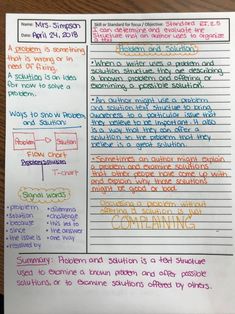 Name: Mrs. Simpson
Date: April 24, 2018
Skill or Standard for focus / Objective: Standard RI.2.5
I can determine and evaluate the
structure that an author uses to organize
a text.
A problem is something
that is wrong or in
need of fixing.
A solution is an idea
for how to solve a
problem.
Ways to Show Problem
and Solution:
Problem
Solution
Flow Chart
Problem Solution
T-chart
Signal words
• problem
• solution
• because
• since
• the issue is
• resolved by
• dilemma
• challenge
• this led to
• the answer
• one way
Problem and Solution
• When a writer uses a problem and
solution structure, they are describing
a known problem and offering or
examining a possible solution.
• An author might use a problem
and solution text structure to bring
readers to a particular issue that
they believe to be important. It also
is a way that they can offer a
solution to the problem that they
believe is a great solution.
• Sometimes an author might explain
a problem and examine solutions
that other people have come up with
and explain why those solutions
might be good or bad.
Discussing a problem without
offering a solution is just
COMPLAINING
Summary: Problem and solution is a text structure
used to examine a known problem and offer possible
solutions, or to examine solutions offered by others.